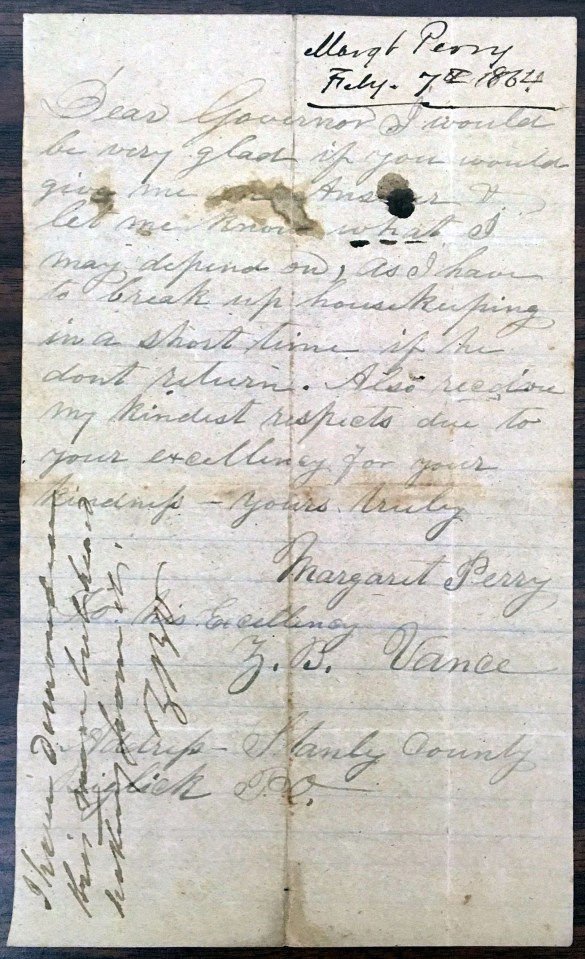 Margt Perry
Feby. 7th 1864
Dear Governor I would
be very glad if you would
give me an Answer &
let me know what I
may depend on, as I have
to break up housekeeping
in a short time if he
dont return. Also receive
my kindest respects due to
your excellency for your
kindness - yours truly
Margaret Perry
To his Excellency
Z. B. Vance
Address Stanly County
Biglick P.O.
I have demanded
this man but have
nothing from it.
ZBV